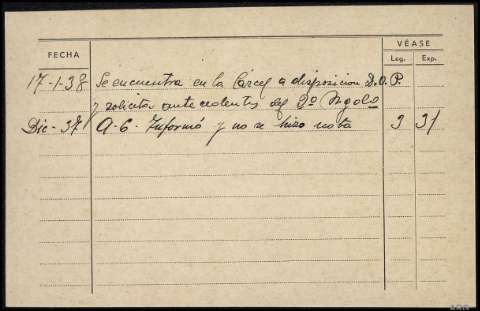 FECHA
VÉASE
Leg. Exp.
17-1-38 Se encuentra en la Cárcel a disposicion D.O.P.
y solicita antecedentes del 2º
Dic-37 A-6. Informó y no se hizo nota 3 31